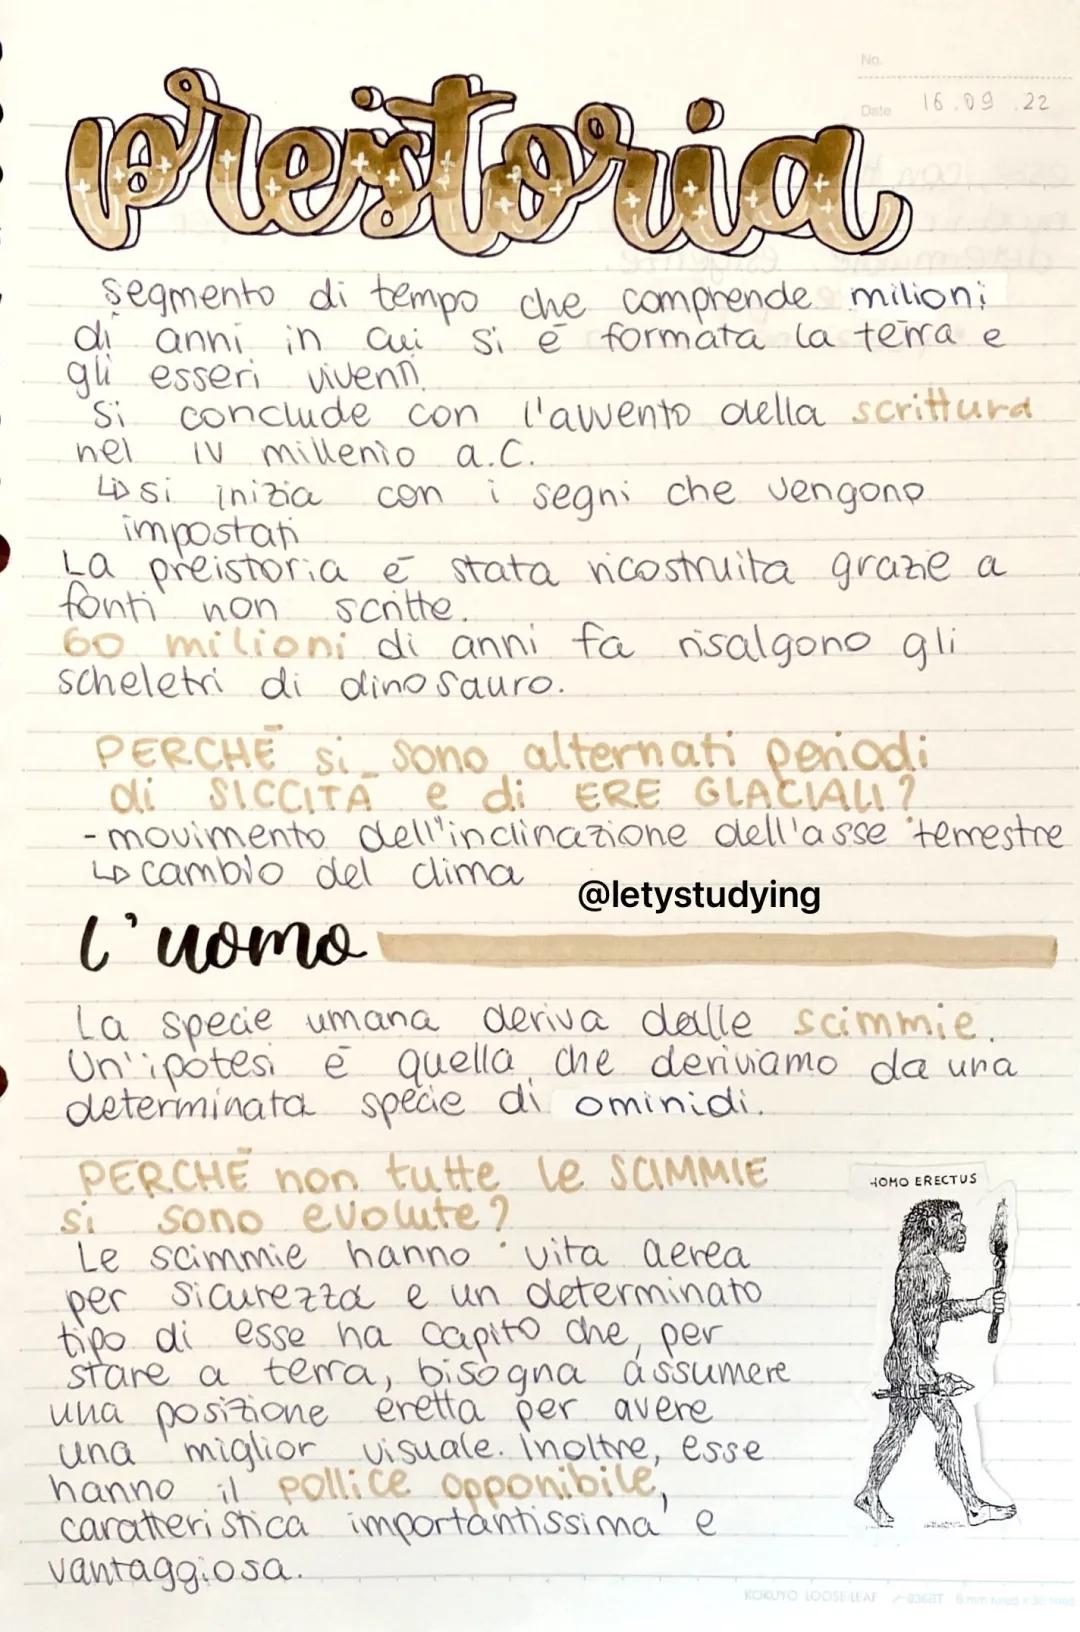 No.
Date 16.09.22
preistoria
segmento di tempo che comprende milioni
di anni in cui si è formata la terra e
gli esseri viventi.
Si conclude con l'avvento della scrittura
nel IV millenio a.C.
↳ si inizia con i segni che vengono
impostati
La preistoria è stata ricostruita grazie a
fonti non scritte.
60 milioni di anni fa risalgono gli
scheletri di dinosauro.
PERCHÉ si sono alternati periodi
di SICCITÀ e di ERE GLACIALI?
- movimento dell'inclinazione dell'asse terrestre
↳ cambio del clima
@letystudying
l'uomo
La specie umana deriva dalle scimmie.
Un'ipotesi è quella che deriviamo da una
determinata specie di ominidi.
PERCHÉ non tutte le SCIMMIE
si sono evolute?
HOMO ERECTUS
Le scimmie hanno vita aerea
per sicurezza e un determinato
tipo di esse ha capito che, per
stare a terra, bisogna assumere
una posizione eretta per avere
una miglior visuale. Inoltre, esse
hanno il pollice opponibile,
caratteristica importantissima e
vantaggiosa.
KOKUYO LOOSE-LEAF